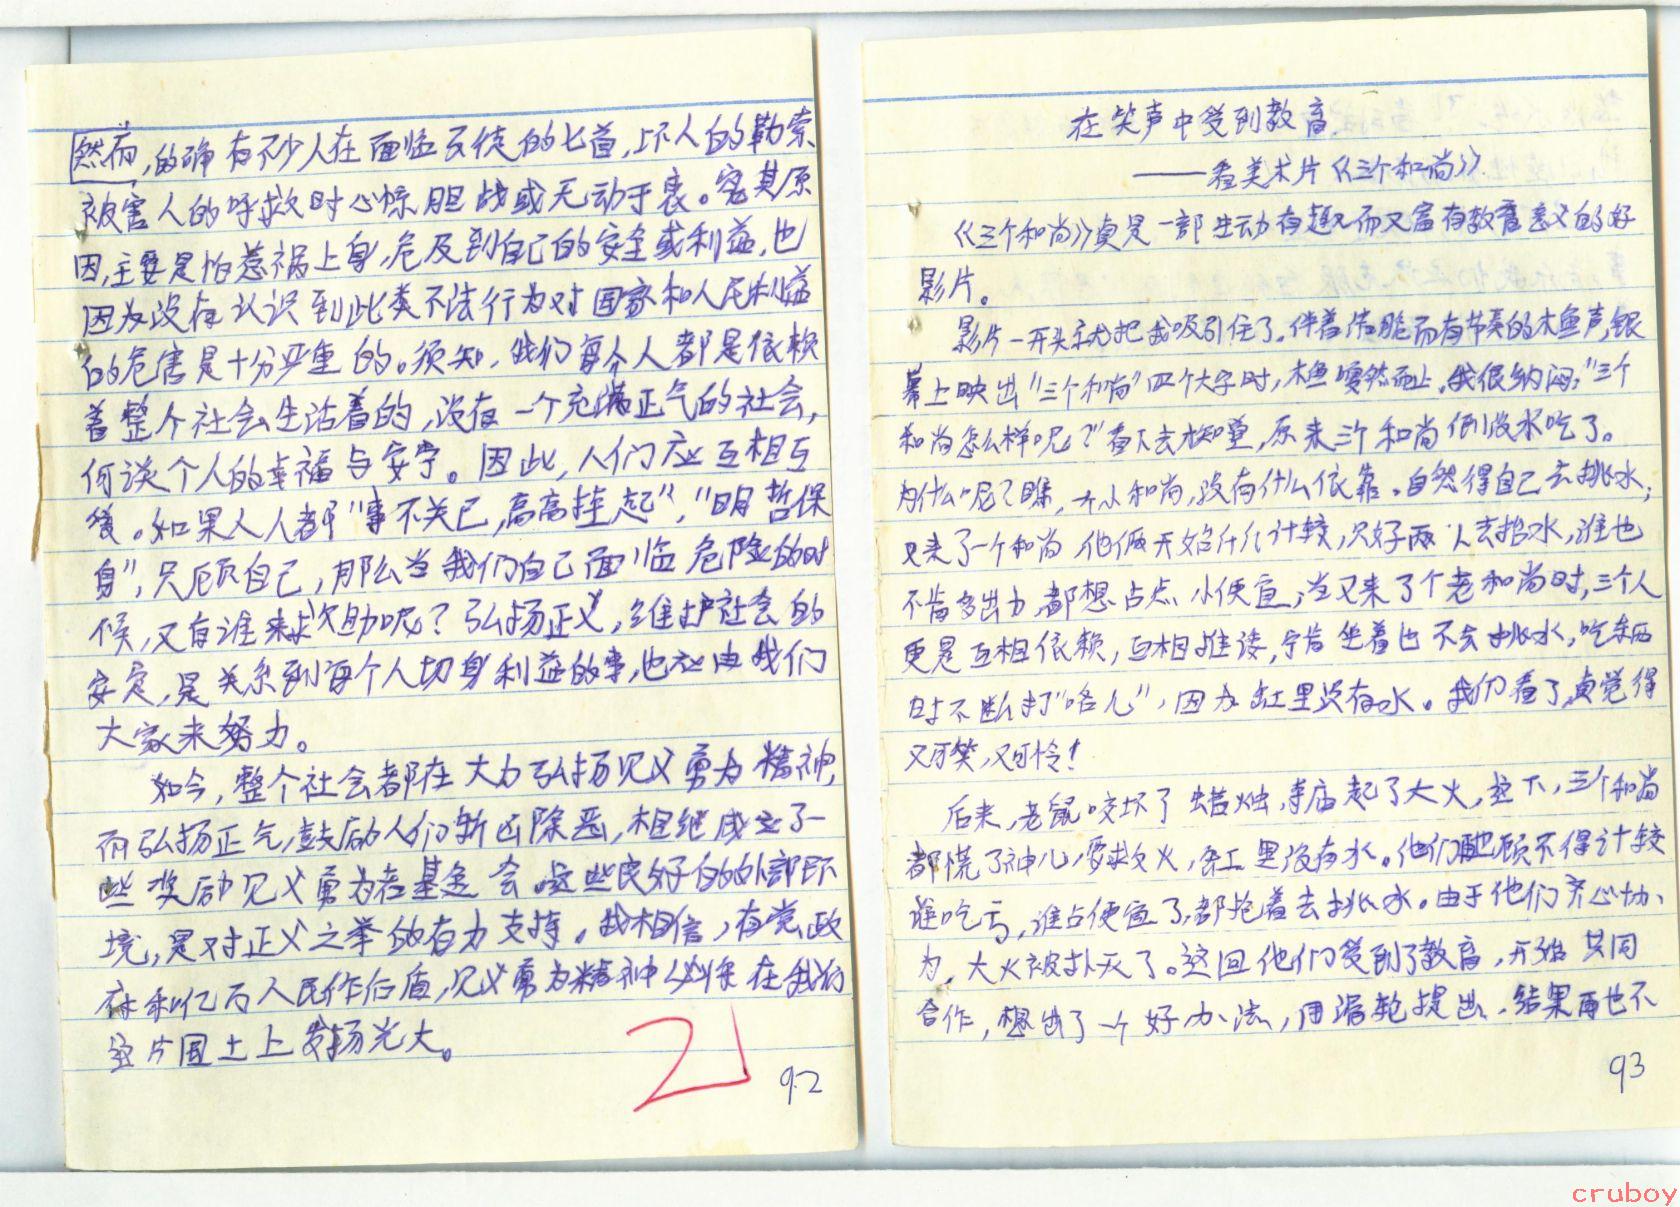 然而，的确有不少人在面临歹徒的匕首，坏人的勒索
被害人的呼救时心惊胆战或无动于衷。究其原
因，主要是怕惹祸上身，危及到自己的安全或利益，也
因为没有认识到此类不法行为对国家和人民利益
的危害是十分严重的。须知，我们每个人都是依赖
着整个社会生活着的，没有一个充满正气的社会，
何谈个人的幸福与安宁。因此，人们应互相互
。如果人人都"事不关己，高高挂起"，"明哲保
身"，只顾自己，那么当我们自己面临危险的时
候，又有谁来救助呢？弘扬正义，维护社会的
安定，是关系到每个人切身利益的事，也应由我们
大家来努力。
如今，整个社会都在大力弘扬见义勇为精神，
而弘扬正气，鼓励人们斩凶除恶，相继成立了一
些奖励见义勇为者基金会。这些良好的外部环
境，是对正义之举的有力支持。我相信，有党政
府和亿万人民作后盾，见义勇为精神必将在我们
这片国土上发扬光大。
21
92
在笑声中受到教育
——看美术片《三个和尚》
《三个和尚》真是一部生动有趣而又富有教育意义的好
影片。
影片一开头就把我吸引住了。伴着清脆而有节奏的木鱼声，银
幕上映出"三个和尚"四个大字时，木鱼嘎然而止。我很纳闷："三个
和尚怎么样呢？"看下去才知道，原来三个和尚倒没水吃了。
为什么呢？瞧，一个小和尚，没有什么依靠。自然得自己去挑水；
又来了一个和尚 他俩开始计较，只好两人去抬水，谁也
不肯多出力，都想占点小便宜；当又来了个老和尚时，三个人
更是互相依赖，互相推诿，宁肯坐着也不去挑水，吃东西
时不断打"咯儿"，因为缸里没有水。我们看了，真觉得
又可笑，又可怜！
后来，老鼠咬坏了蜡烛，寺庙起了大火，这下，三个和尚
都慌了神儿，要救火，缸里没有水。他们顾不得计较
谁吃亏，谁占便宜了，都抢着去挑水。由于他们齐心协
力，大火被扑灭了。这回他们受到了教育，开始共同
合作，想出了一个好办法，用滑轮提出，结果再也不
93
cruboy